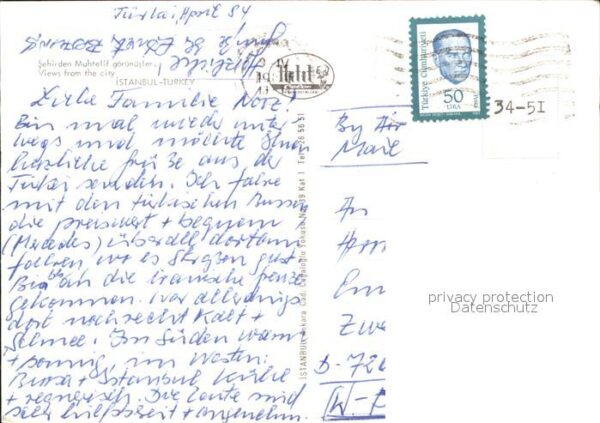 Türkei, April 84
Şehirden Muhtelif görünüşler
Views from the city
İSTANBUL-TURKEY
Türkiye Cumhuriyeti
50
LİRA
34-51
Liebe Familie Notz!
Bin mal wieder unter-
wegs und möchte Ihnen
herzliche Grüße aus der
Türkei senden. Ich fahre
mit den türkischen Bussen
die preiswert + bequem
(Mercedes) überall dorthin
fahren wo es Straßen gibt.
Bin bis an die iranische Grenze
gekommen. War allerdings
dort noch recht kalt +
Schnee. Im Süden warm
+ sonnig, im Westen:
Bursa + Istanbul kühle
+ regnerisch. Die Leute sind
sehr hilfsbereit + angenehm.
İSTANBUL Ankara Cad. Cağaloğlu Yokuşu No. 39 Kat 1 Tel: 26 56 51
By Air
Mail
An
Em
Zwe
D-726
W-
privacy protection
Datenschutz